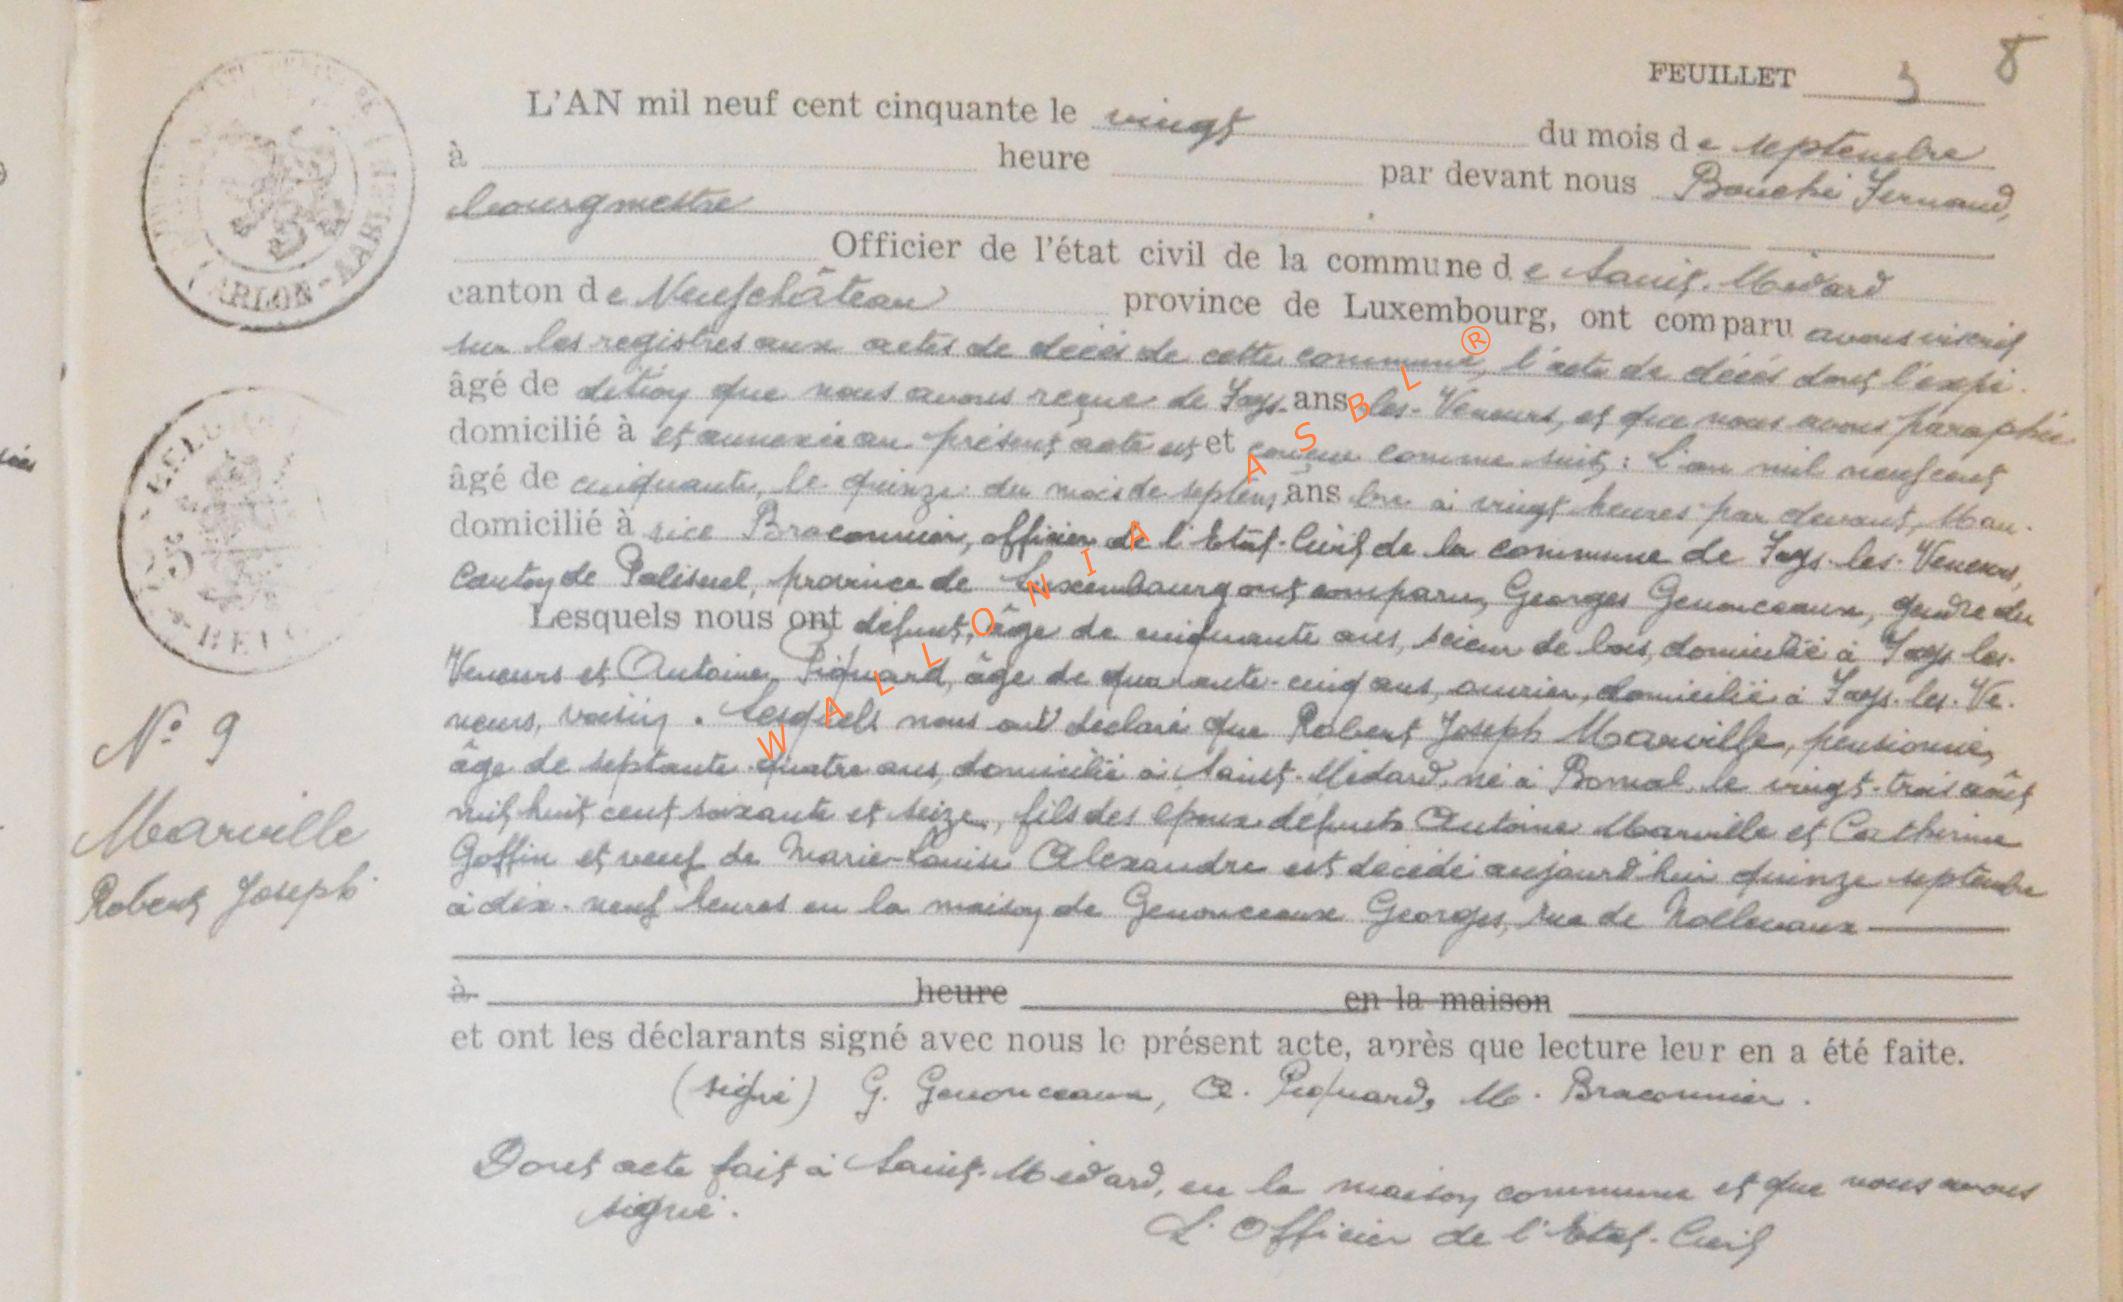 FEUILLET 3 8
L'AN mil neuf cent cinquante le vingt du mois de septembre
à heure par devant nous Bouché Fernand,
bourgmestre
Officier de l'état civil de la commune de Saint-Médard
canton de Neufchâteau province de Luxembourg, ont comparu avons inscrit
sur les registres aux actes de décès de cette commune, l'acte de décès dont l'expé-
âgé de dition que nous avons reçue de Fays- ans les-Veneurs, et que nous avons paraphée
domicilié à et annexée au présent acte est et conçue comme suit : L'an mil neuf cent
âgé de cinquante, le quinze du mois de septem ans bre à vingt heures par devant, Mau-
domicilié à rice Braconnier, officier de l'Etat-Civil de la commune de Fays-les-Veneurs,
Canton de Paliseul, province de Luxembourg ont comparu, Georges Genonceaux, gendre du
Lesquels nous ont défunt, âge de cinquante ans, scieur de bois, domicilié à Fays-les-
Veneurs et Antoine Piquard, âge de quarante-cinq ans, ouvrier, domicilié à Fays-les-Ve-
neurs, voisin. Lesquels nous ont déclaré que Robert Joseph Marville, pensionné,
âge de septante-quatre ans, domicilié à Saint-Médard, né à Bomal le vingt-trois août
mil huit cent soixante et seize, fils des époux défunts Antoine Marville et Catherine
Goffin et veuf de Marie-Louise Alexandre est décédé aujourd'hui quinze septembre
à dix-neuf heures en la maison de Genonceaux Georges, rue de Nollevaux
à heure en la maison
et ont les déclarants signé avec nous le présent acte, après que lecture leur en a été faite.
(signé) G. Genonceaux, A. Piquard, M. Braconnier.
Dont acte fait à Saint-Médard, en la maison commune et que nous avons
signé.
L'Officier de l'Etat-Civil
N° 9
Marville
Robert Joseph
ARLON-AARLEN
WALLONIA ASBL ®